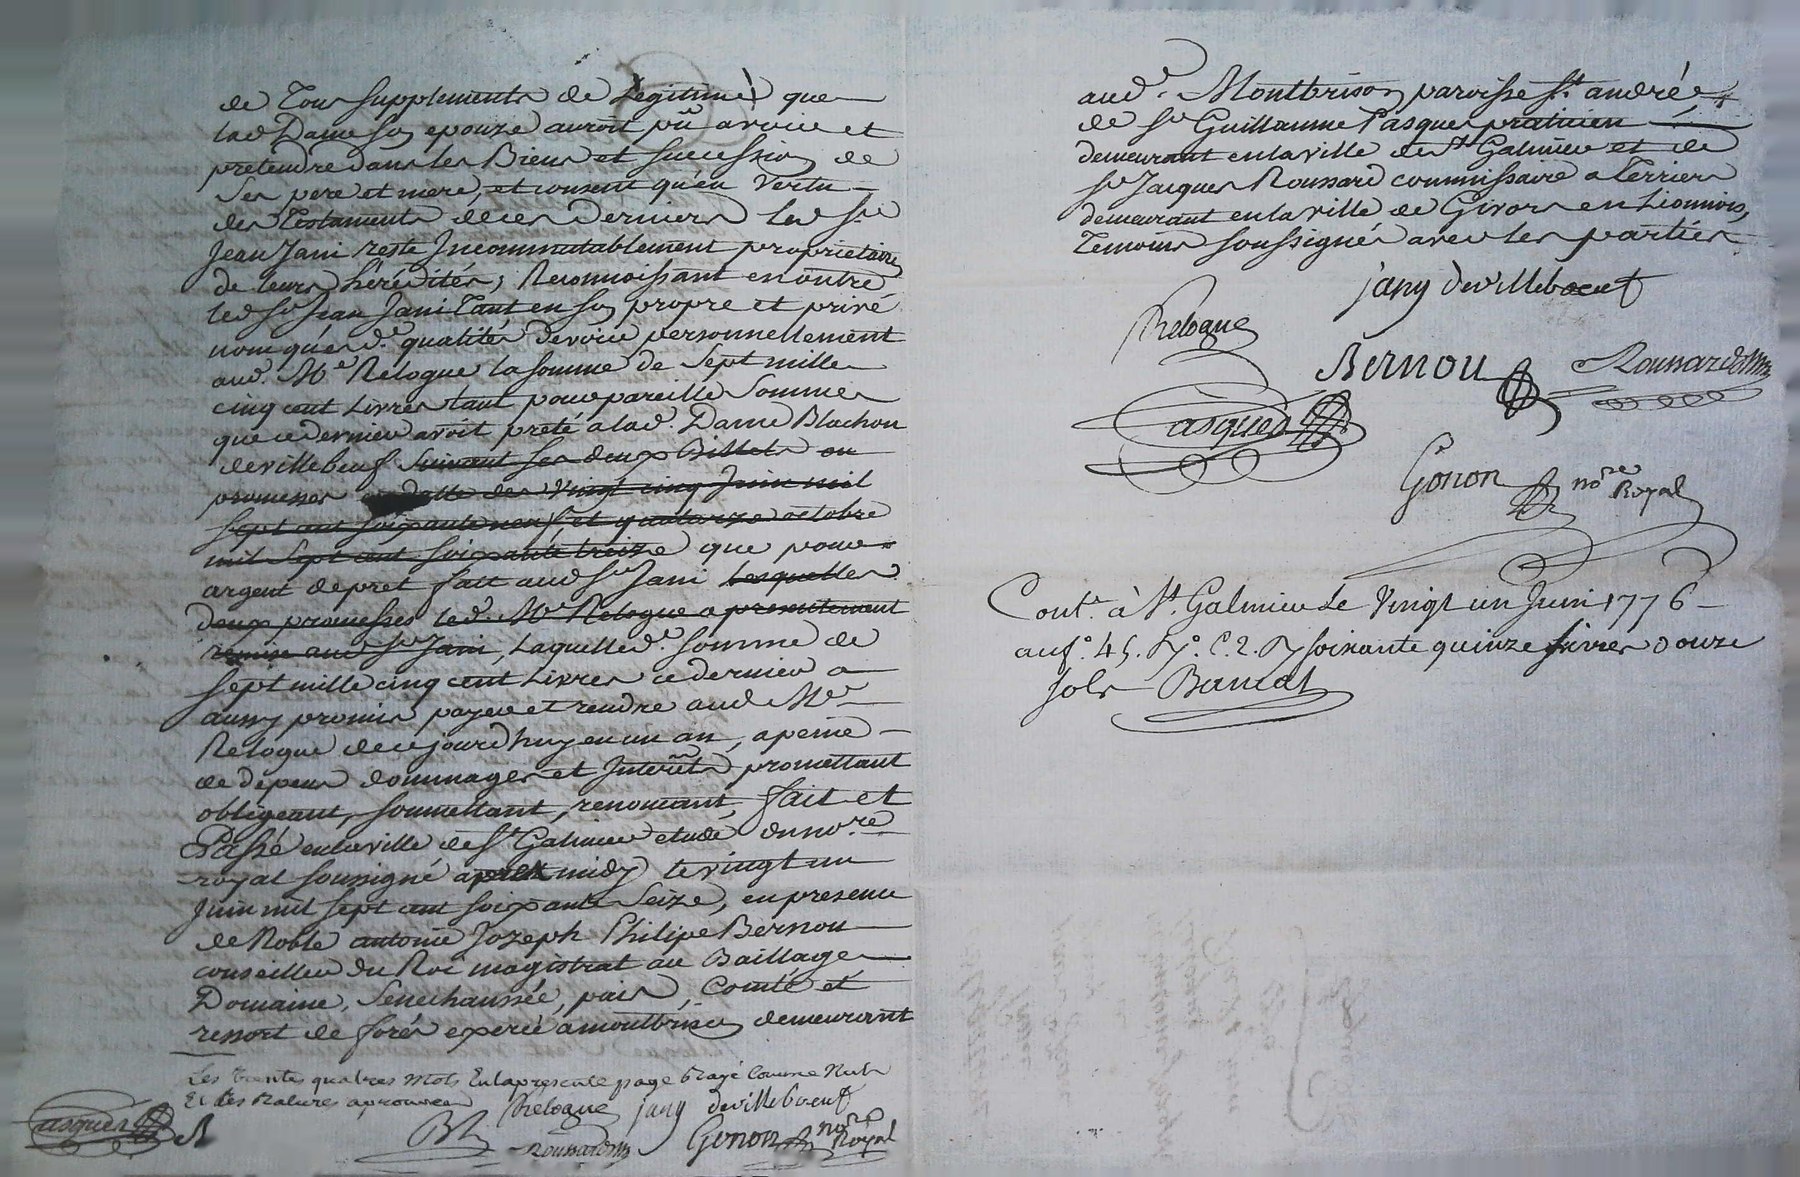 de Tous supplements de Legitime que
lad Dame son epouze auroit pû avoir et
pretendre dans les Biens et succession de
Ses pere et mere, et consent qu'en Vertu
des Testaments de ces Derniers led Sr.
Jean Jani reste Incommutablement proprietaire
de leurs hérédités, Reconnoissant en outre
led Sr. Jean Jani Tant en son propre et privé
nom qu'es d. qualités devoir personnellement
aud. Me Relogue la somme de Sept mille
cinq cent Livres tant pour pareille Somme
que ce dernier avoit preté a lad. Dame Blachon
devillebeuf Suivant ses deux Billets ou
promesses en datte des Vingt cinq Juin mil
sept cent soixante neuf, et quatorze octobre
mil Sept cent soixante treize que pour
argent de pret fait aud Sr. Jani lesquelles
deux promesses led. Me Relogue a presentement
remise aud Sr. Jani, Laquelle d. somme de
sept mille cinq cent Livres ce dernier a
aussy promis payer et rendre aud Me
Relogue de ce jourd'huy en un an, a peine
de dépens dommages et Interêts promettant
obligeant, soumettant, renoncant, fait et
Passé en la ville de St. Galmier etude du nore
royal soussigné apres midy le vingt un
Juin mil sept cent soixante Seize, en presence
de Noble antoine Jozeph Philipe Bernou
conseiller du Roi magistrat au Baillage
Domaine, Senechaussée, pais, Comté et
ressort de forés exercé a montbrison demeurant
Les trente quatres mots En la presente page Rayé Comme Nuls
Et les Ratures aprouvées Relogue jany devillebœuf
Pasques Roussard Gonon nore Royal
aud. Montbrison paroisse St. andré,
de Sr Guillaume Pasques praticien
demeurant en la ville de St Galmier et de
Sr Jacques Roussard commissaire a Terriers
demeurant en la ville de Givors en Lionnois,
Temoins soussignés avec les parties
jany devillebœuf
Relogue
Bernou Roussard
Pasques
Gonon nore Royal
Contr. à St. Galmier Le Vingt un Juin 1776
au fo. 45. Ro. C. 2. R soixante quinze Livres douze
sols Banzal